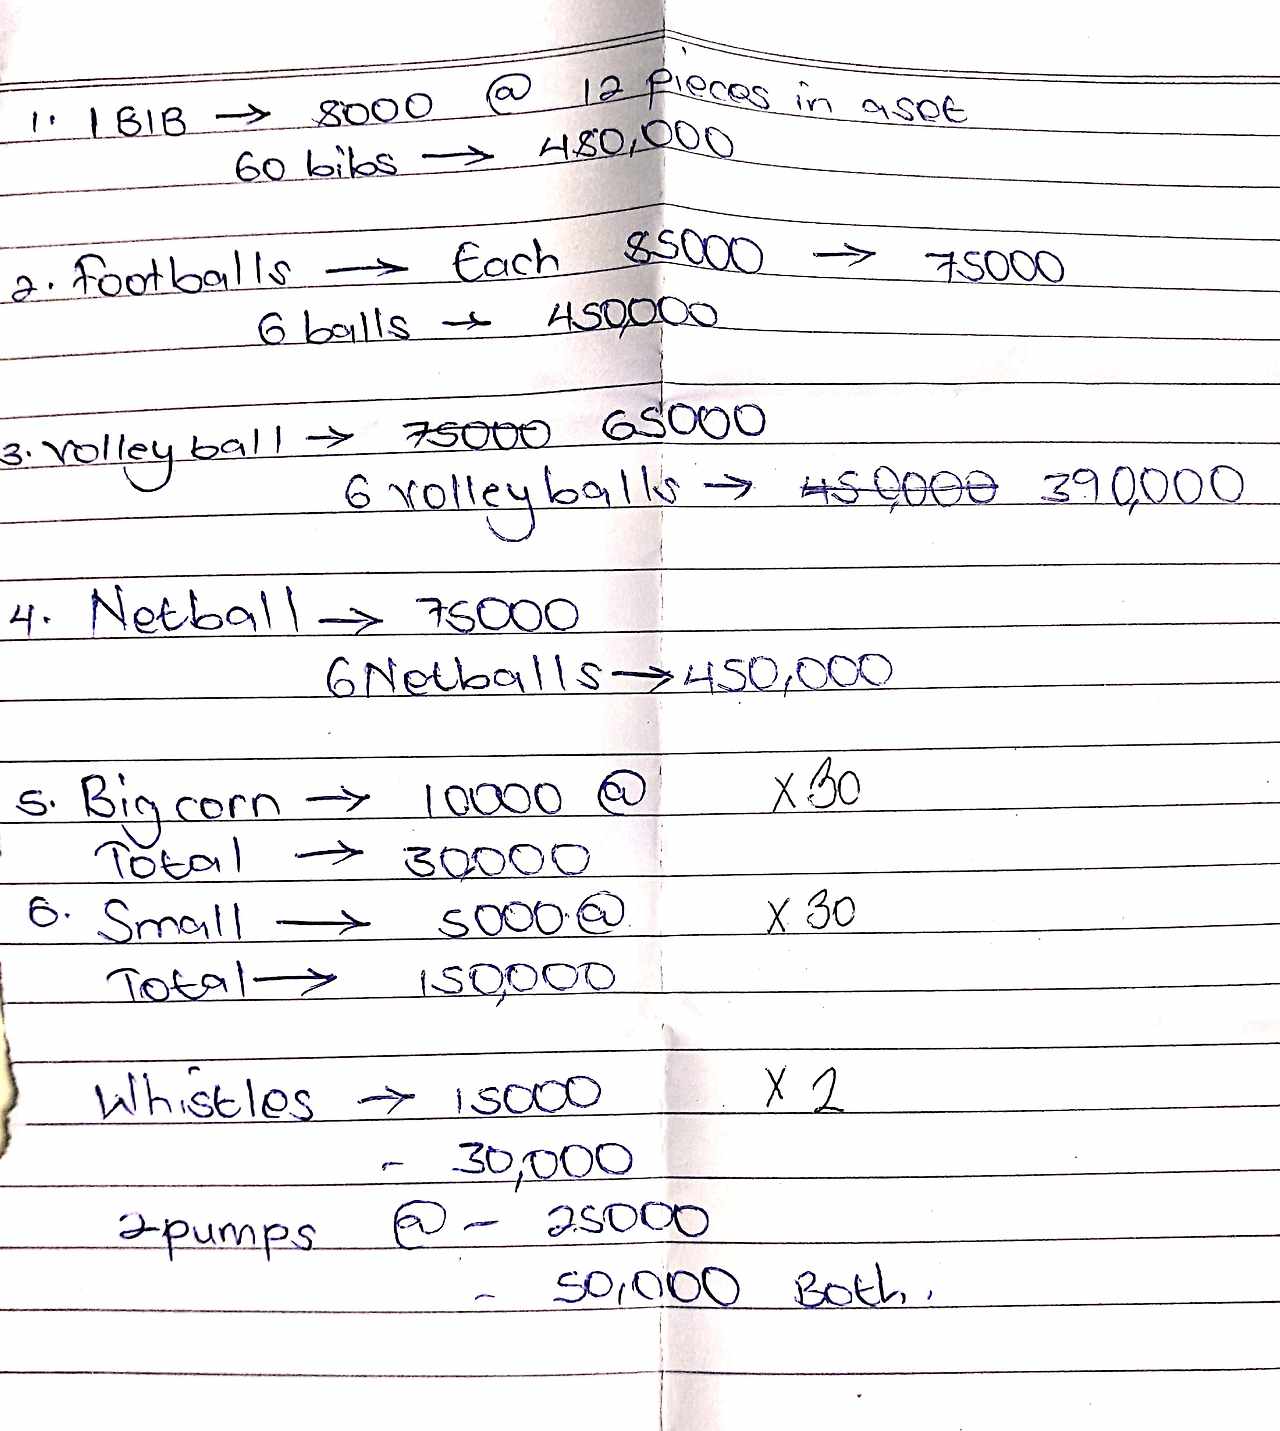 1. 1 BIB → 8000 @ 12 pieces in a set
60 bibs → 480,000
2. Footballs → Each 85000 → 75000
6 balls → 450,000
3. Volley ball → 75000 65000
6 volley balls → 450,000 390,000
4. Netball → 75000
6 Netballs → 450,000
5. Big corn → 10000 @ x 30
Total → 30,000
6. Small → 5000 @ x 30
Total → 150,000
Whistles → 15000 x 2
- 30,000
2 pumps @ - 25000
- 50,000 Both.